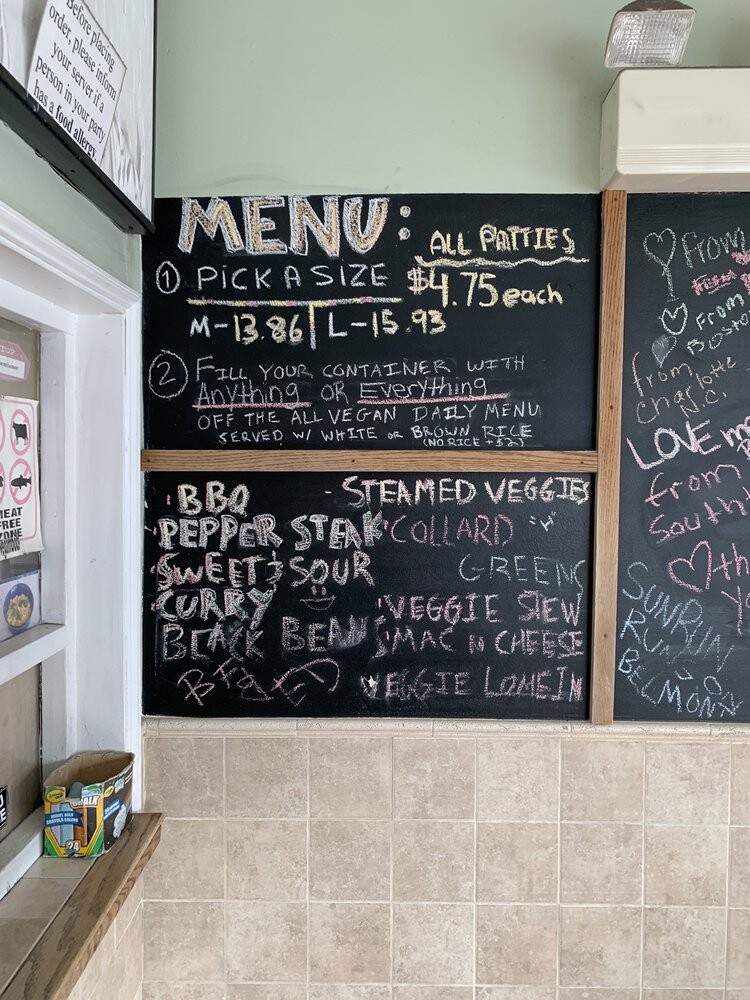 Before placing
order, please inform
your server if a
person in your party
has a food allergy.
MENU:
ALL PATTIES
$4.75 each
① PICK A SIZE
M-13.86 | L-15.93
② FILL YOUR CONTAINER WITH
Anything OR Everything
OFF THE ALL VEGAN DAILY MENU
SERVED W/ WHITE OR BROWN RICE
(NO RICE +$2)
BBQ
PEPPER STEAK
SWEET & SOUR
CURRY
BLACK BEANS
- STEAMED VEGGIES
COLLARD
GREENS
VEGGIE STEW
MAC N CHEESE
VEGGIE LOMEIN
From
From
Bosto
From
Charlotte
N.C.
LOVE
From
South
th
SUNRUN
BELMONT
MEAT
FREE
ZONE
24